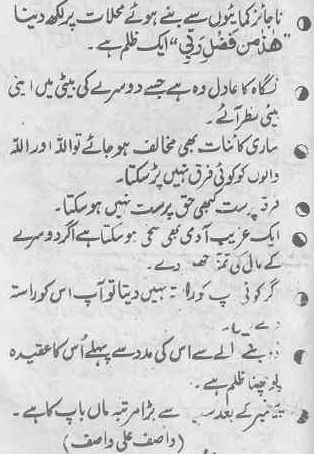 ناجائز کمائیوں سے بنے ہوئے محلات پر لکھ دینا
"ھٰذا من فضل ربی" ایک ظلم ہے۔
نگاہ کا عادل وہ ہے جسے دوسرے کی بیٹی میں اپنی
بیٹی نظر آئے۔
ساری کائنات بھی مخالف ہو جائے تو اللہ اور اللہ
والوں کو کوئی فرق نہیں پڑ سکتا۔
فرقہ پرست کبھی حق پرست نہیں ہو سکتا۔
ایک غریب آدمی بھی سخی ہو سکتا ہے اگر دوسرے
کے مال کی تمنا دے۔
گر کوئی پ کو را نہیں دیتا تو آپ اس کو راستہ
دے
ڈوبنے والے سے اس کی مدد سے پہلے اُس کا عقیدہ
پوچھنا ظلم ہے۔
پیغمبر کے بعد سے بڑا مرتبہ ماں باپ کا ہے۔
(واصف علی واصف)